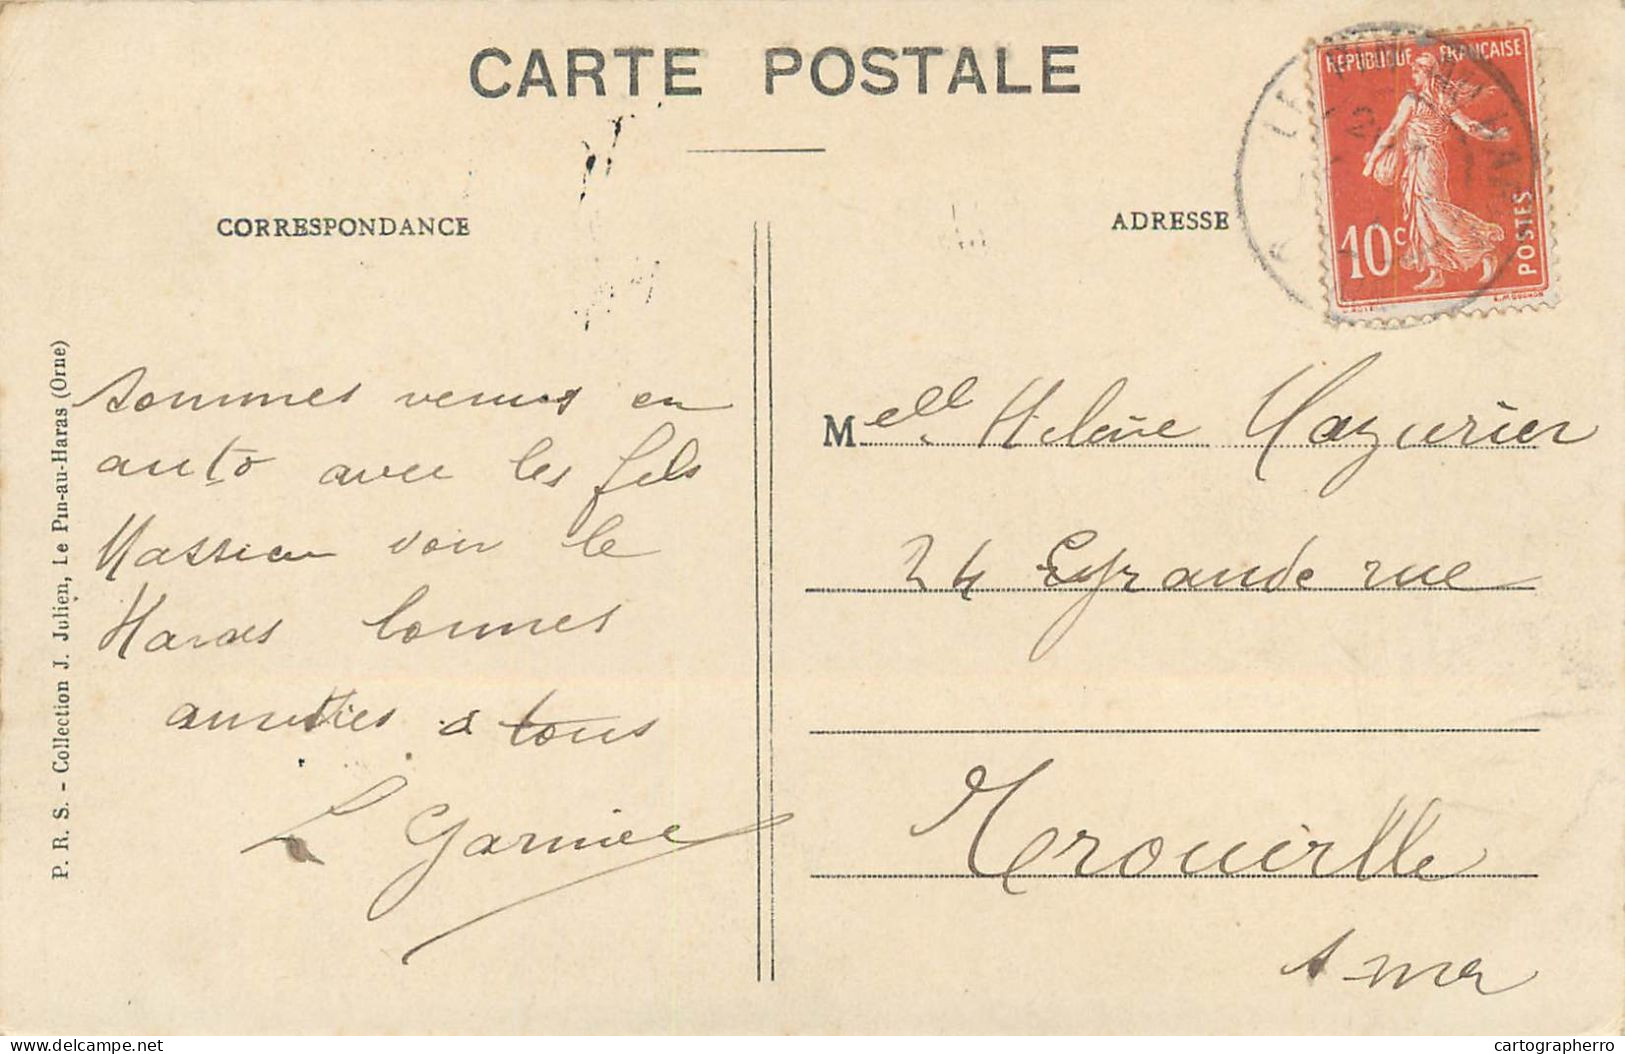 CARTE POSTALE
CORRESPONDANCE
ADRESSE
REPUBLIQUE FRANÇAISE
10c
POSTES
LE PIN AU HARAS
sommes venus en
auto avec les fils
Massieu voir le
Haras bonnes
amitiés à tous
L Garnier
Melle Hélène Mazurier
24 Grande rue
Trouville
s mer
P. R. S. - Collection J. Julien, Le Pin-au-Haras (Orne)
delcampe.net
cartographerro